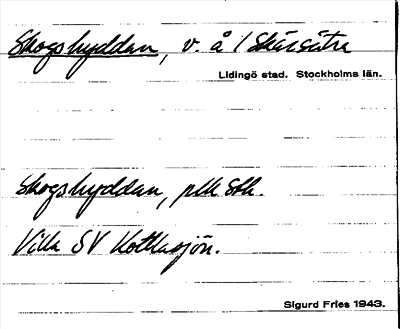 Skogshyddan, v. å / Skärsätra
Lidingö stad. Stockholms län.
Skogshyddan, plk Sth.
Villa SV Kottlasjön.
Sigurd Fries 1943.